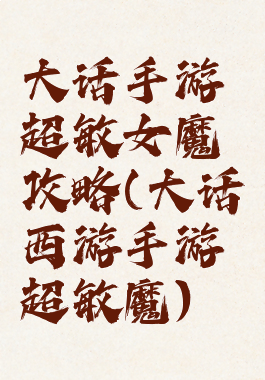 大话手游
超敏女魔
攻略(大话
西游手游
超敏魔)